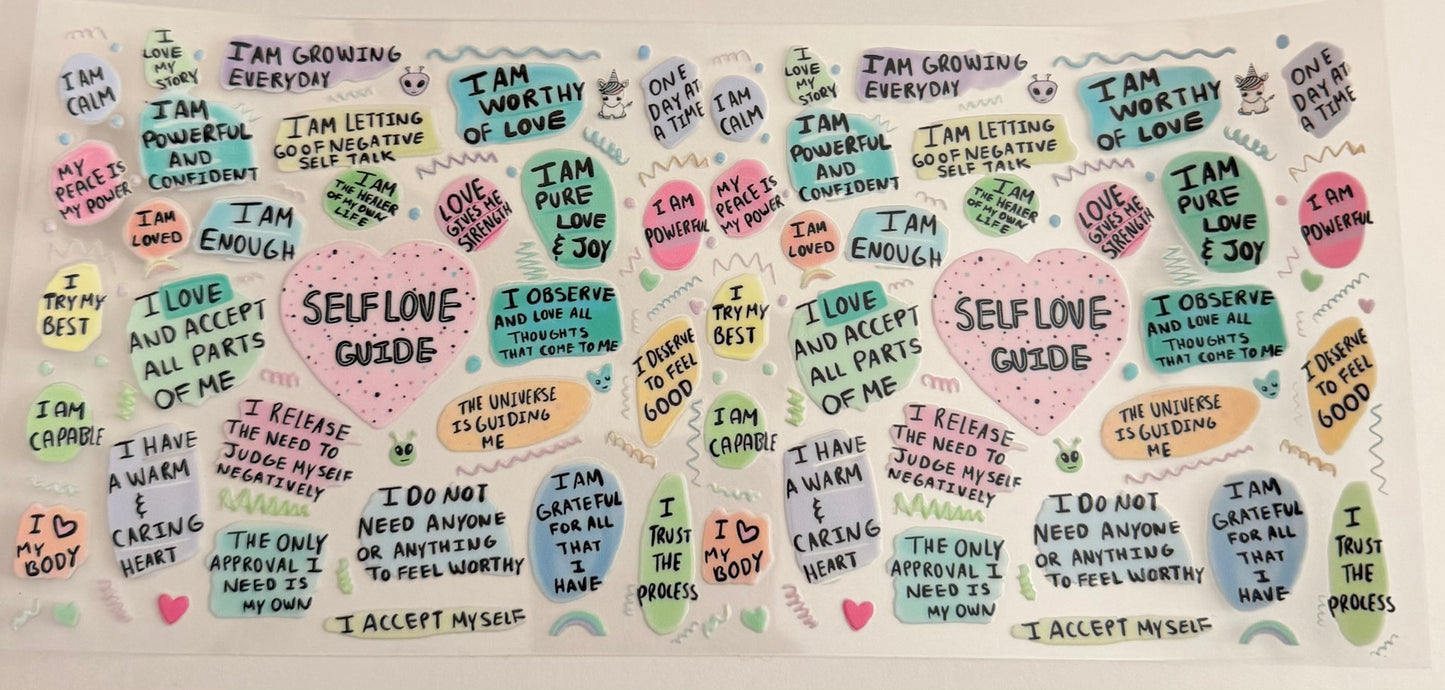 I
LOVE
MY
STORY
I AM GROWING
EVERYDAY
I AM
CALM
I AM
WORTHY
OF LOVE
ONE
DAY AT
A TIME
I AM
POWERFUL
AND
CONFIDENT
I AM LETTING
GO OF NEGATIVE
SELF TALK
MY
PEACE IS
MY POWER
I AM
THE HEALER
OF MY OWN
LIFE
LOVE
GIVES ME
STRENGTH
I AM
PURE
LOVE
& JOY
I AM
POWERFUL
I AM
LOVED
I AM
ENOUGH
I
TRY MY
BEST
I LOVE
AND ACCEPT
ALL PARTS
OF ME
SELF LOVE
GUIDE
I OBSERVE
AND LOVE ALL
THOUGHTS
THAT COME TO ME
I DESERVE
TO FEEL
GOOD
I AM
CAPABLE
I RELEASE
THE NEED TO
JUDGE MYSELF
NEGATIVELY
THE UNIVERSE
IS GUIDING
ME
I HAVE
A WARM
&
CARING
HEART
I DO NOT
NEED ANYONE
OR ANYTHING
TO FEEL WORTHY
I AM
GRATEFUL
FOR ALL
THAT
I
HAVE
I
TRUST
THE
PROCESS
I ♡
MY
BODY
THE ONLY
APPROVAL I
NEED IS
MY OWN
I ACCEPT MYSELF
I
LOVE
MY
STORY
I AM GROWING
EVERYDAY
I AM
CALM
I AM
WORTHY
OF LOVE
ONE
DAY AT
A TIME
I AM
POWERFUL
AND
CONFIDENT
I AM LETTING
GO OF NEGATIVE
SELF TALK
MY
PEACE IS
MY POWER
I AM
THE HEALER
OF MY OWN
LIFE
LOVE
GIVES ME
STRENGTH
I AM
PURE
LOVE
& JOY
I AM
POWERFUL
I AM
LOVED
I AM
ENOUGH
I
TRY MY
BEST
I LOVE
AND ACCEPT
ALL PARTS
OF ME
SELF LOVE
GUIDE
I OBSERVE
AND LOVE ALL
THOUGHTS
THAT COME TO ME
I DESERVE
TO FEEL
GOOD
I AM
CAPABLE
I RELEASE
THE NEED TO
JUDGE MYSELF
NEGATIVELY
THE UNIVERSE
IS GUIDING
ME
I HAVE
A WARM
&
CARING
HEART
I DO NOT
NEED ANYONE
OR ANYTHING
TO FEEL WORTHY
I AM
GRATEFUL
FOR ALL
THAT
I
HAVE
I
TRUST
THE
PROCESS
I ♡
MY
BODY
THE ONLY
APPROVAL I
NEED IS
MY OWN
I ACCEPT MYSELF